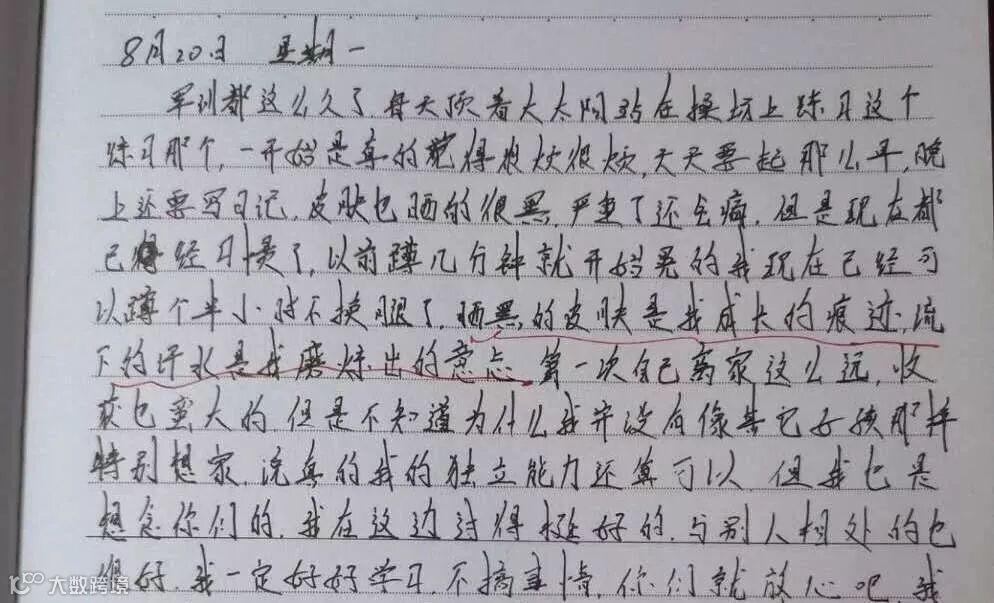 8月20日 星期一
军训都这么久了,每天顶着大太阳站在操场上练习这个
练习那个,一开始是真的觉得很烦很烦,天天要起那么早,晚
上还要写日记,皮肤也晒的很黑,严重了还会痛,但是现在都
已经习惯了,以前蹲几分钟就开始晃的我现在已经可
以蹲个半小时不换腿了,晒黑的皮肤是我成长的痕迹,流
下的汗水是我磨炼出的意志,第一次自己离家这么远,收
获也蛮大的,但是不知道为什么我并没有像其它孩那样
特别想家,说真的我的独立能力还算可以,但我也是
想念你们的,我在这边过得挺好的,与别人相处的也
很好,我一定好好学习,不搞事情,你们就放心吧,我
大数跨境